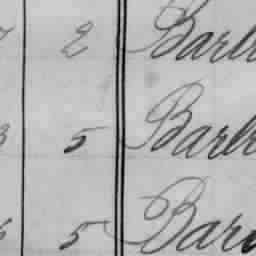 2 Barl
5 Barl
5 Bar